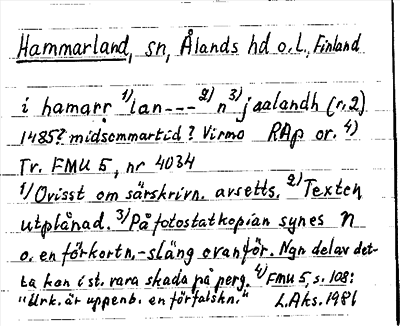 Hammarland, sn, Ålands hd o. l., Finland
i hamarr ¹⁾lan---²⁾ n³⁾ jaalandh (r. 2)
1485? midsommartid? Virmo RAp or. ⁴⁾
Tr. FMU 5, nr 4034
¹⁾Ovisst om särskrivn. avsetts. ²⁾Texten
utplånad. ³⁾På fotostatkopian synes n
o. en förkortn.-släng ovanför. Ngn del av det-
ta kan i st. vara skada på perg. ⁴⁾FMU 5, s. 108:
"Urk. är uppenb. en förfalskn." L.Aks. 1981